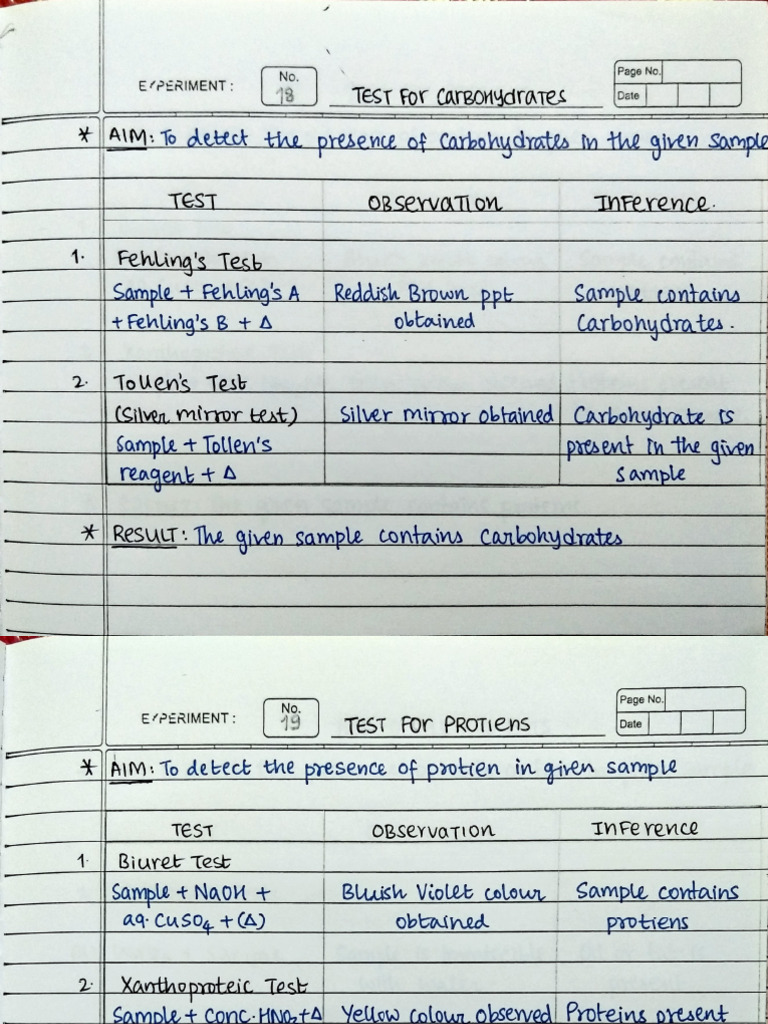 EXPERIMENT: No. 18 TEST FOR CARBOHYDRATES Page No. Date
* AIM: To detect the presence of Carbohydrates in the given sample
TEST OBSERVATION INFERENCE.
1. Fehling's Test
Sample + Fehling's A Reddish Brown ppt Sample contains
+ Fehling's B + Δ obtained Carbohydrates.
2. Tollen's Test
(Silver mirror test) Silver mirror obtained Carbohydrate is
Sample + Tollen's present in the given
reagent + Δ sample
* RESULT: The given sample contains Carbohydrates
EXPERIMENT: No. 19 TEST FOR PROTIENS Page No. Date
* AIM: To detect the presence of protien in given sample
TEST OBSERVATION INFERENCE
1. Biuret Test
Sample + NaOH + Bluish Violet colour Sample contains
aq. CuSO₄ + (Δ) obtained protiens
2. Xanthoproteic Test
Sample + Conc. HNO₃ + Δ Yellow colour observed Proteins present